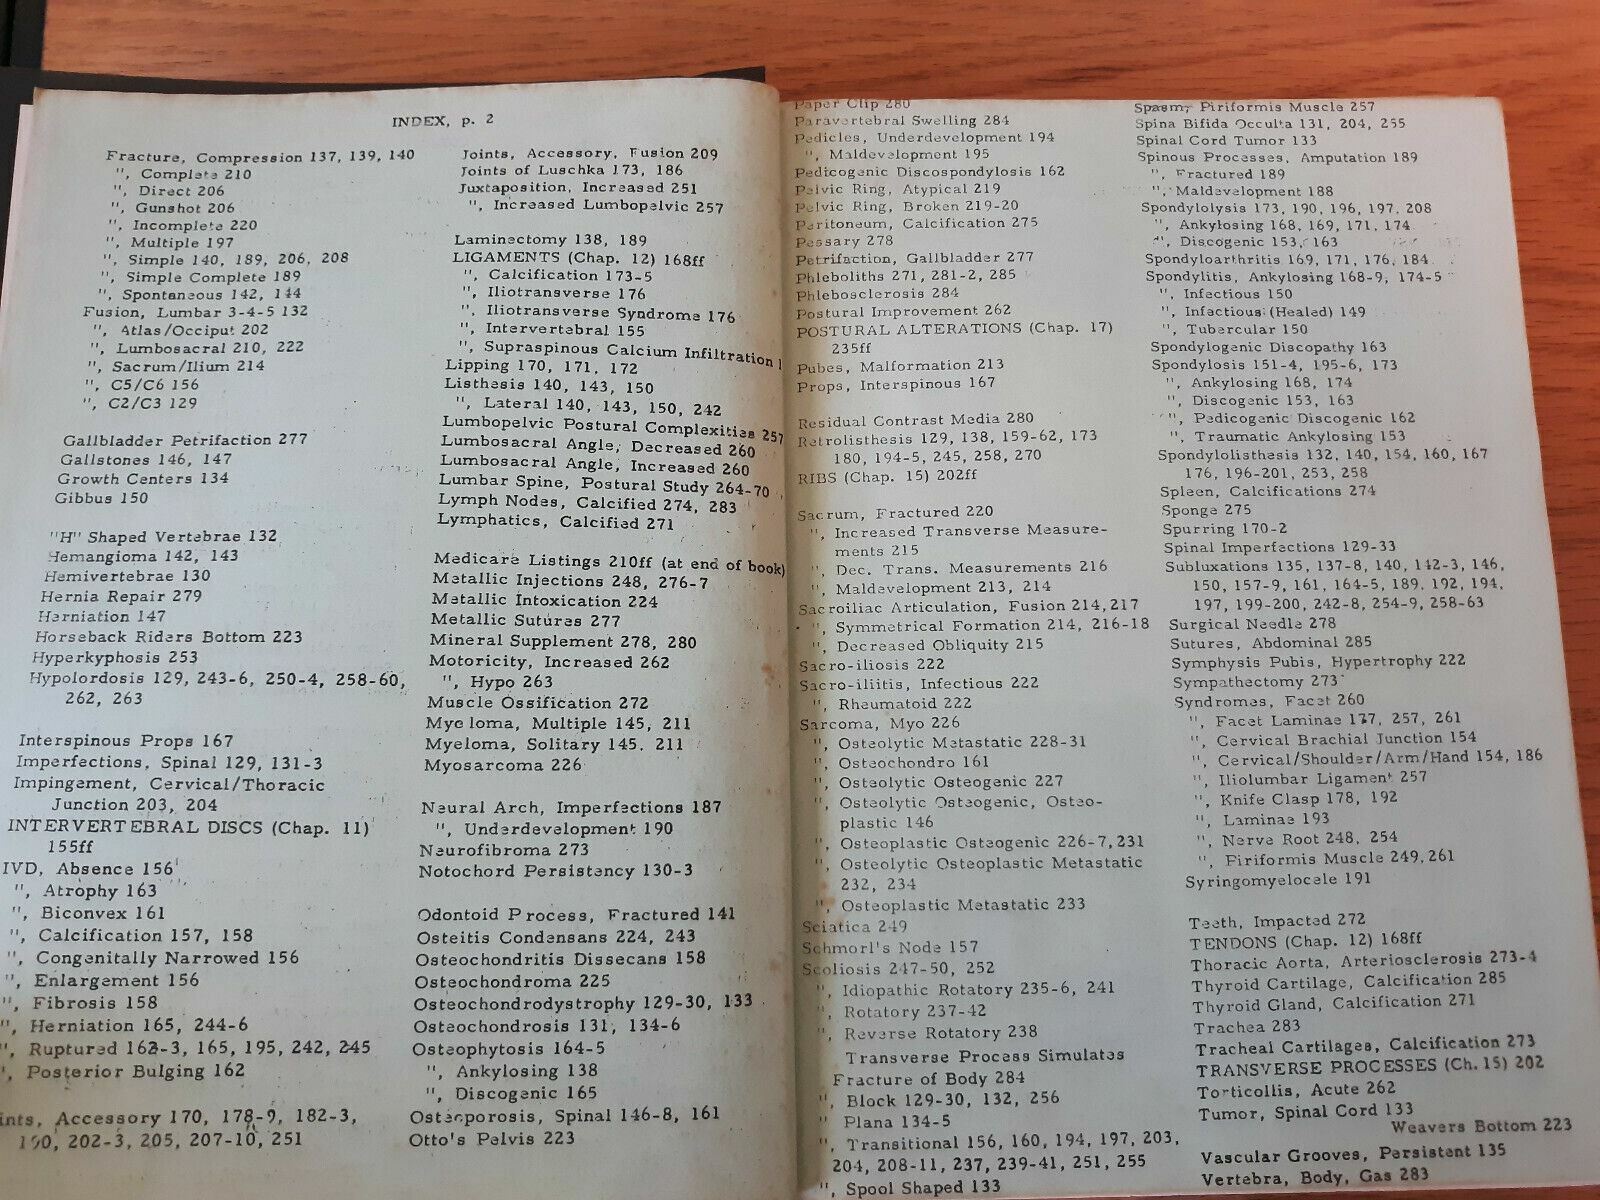 INDEX, p. 2
Fracture, Compression 137, 139, 140
", Complete 210
", Direct 206
", Gunshot 206
", Incomplete 220
", Multiple 197
", Simple 140, 189, 206, 208
", Simple Complete 189
", Spontaneous 142, 144
Fusion, Lumbar 3-4-5 132
", Atlas/Occiput 202
", Lumbosacral 210, 222
", Sacrum/Ilium 214
", C5/C6 156
", C2/C3 129
Gallbladder Petrifaction 277
Gallstones 146, 147
Growth Centers 134
Gibbus 150
"H" Shaped Vertebrae 132
Hemangioma 142, 143
Hemivertebrae 130
Hernia Repair 279
Herniation 147
Horseback Riders Bottom 223
Hyperkyphosis 253
Hypolordosis 129, 243-6, 250-4, 258-60,
262, 263
Interspinous Props 167
Imperfections, Spinal 129, 131-3
Impingement, Cervical/Thoracic
Junction 203, 204
INTERVERTEBRAL DISCS (Chap. 11)
155ff
IVD, Absence 156
", Atrophy 163
", Biconvex 161
", Calcification 157, 158
", Congenitally Narrowed 156
", Enlargement 156
", Fibrosis 158
", Herniation 165, 244-6
", Ruptured 162-3, 165, 195, 242, 245
", Posterior Bulging 162
ints, Accessory 170, 178-9, 182-3,
190, 202-3, 205, 207-10, 251
Joints, Accessory, Fusion 209
Joints of Luschka 173, 186
Juxtaposition, Increased 251
", Increased Lumbopelvic 257
Laminectomy 138, 189
LIGAMENTS (Chap. 12) 168ff
", Calcification 173-5
", Iliotransverse 176
", Iliotransverse Syndrome 176
", Intervertebral 155
", Supraspinous Calcium Infiltration 1
Lipping 170, 171, 172
Listhesis 140, 143, 150
", Lateral 140, 143, 150, 242
Lumbopelvic Postural Complexities 257
Lumbosacral Angle, Decreased 260
Lumbosacral Angle, Increased 260
Lumbar Spine, Postural Study 264-70
Lymph Nodes, Calcified 274, 283
Lymphatics, Calcified 271
Medicare Listings 210ff (at end of book)
Metallic Injections 248, 276-7
Metallic Intoxication 224
Metallic Sutures 277
Mineral Supplement 278, 280
Motoricity, Increased 262
", Hypo 263
Muscle Ossification 272
Myeloma, Multiple 145, 211
Myeloma, Solitary 145. 211
Myosarcoma 226
Neural Arch, Imperfections 187
", Underdevelopment 190
Neurofibroma 273
Notochord Persistency 130-3
Odontoid Process, Fractured 141
Osteitis Condensans 224, 243
Osteochondritis Dissecans 158
Osteochondroma 225
Osteochondrodystrophy 129-30, 133
Osteochondrosis 131, 134-6
Osteophytosis 164-5
", Ankylosing 138
", Discogenic 165
Osteoporosis, Spinal 146-8, 161
Otto's Pelvis 223
Paper Clip 280
Paravertebral Swelling 284
Pedicles, Underdevelopment 194
", Maldevelopment 195
Pedicogenic Discospondylosis 162
Pelvic Ring, Atypical 219
Pelvic Ring, Broken 219-20
Peritoneum, Calcification 275
Pessary 278
Petrifaction, Gallbladder 277
Phleboliths 271, 281-2, 285
Phlebosclerosis 284
Postural Improvement 262
POSTURAL ALTERATIONS (Chap. 17)
235ff
Pubes, Malformation 213
Props, Interspinous 167
Residual Contrast Media 280
Retrolisthesis 129, 138, 159-62, 173
180, 194-5, 245, 258, 270
RIBS (Chap. 15) 202ff
Sacrum, Fractured 220
", Increased Transverse Measure-
ments 215
", Dec. Trans. Measurements 216
", Maldevelopment 213, 214
Sacroiliac Articulation, Fusion 214, 217
", Symmetrical Formation 214, 216-18
", Decreased Obliquity 215
Sacro-iliosis 222
Sacro-iliitis, Infectious 222
", Rheumatoid 222
Sarcoma, Myo 226
", Osteolytic Metastatic 228-31
", Osteochondro 161
", Osteolytic Osteogenic 227
", Osteolytic Osteogenic, Osteo-
plastic 146
", Osteoplastic Osteogenic 226-7, 231
", Osteolytic Osteoplastic Metastatic
232, 234
", Osteoplastic Metastatic 233
Sciatica 249
Schmorl's Node 157
Scoliosis 247-50, 252
", Idiopathic Rotatory 235-6, 241
", Rotatory 237-42
", Reverse Rotatory 238
Transverse Process Simulates
Fracture of Body 284
", Block 129-30, 132, 256
" Plana 134-5
", Transitional 156, 160, 194, 197, 203,
204, 208-11, 237, 239-41, 251, 255
", Spool Shaped 133
Spasm, Piriformis Muscle 257
Spina Bifida Occulta 131, 204, 255
Spinal Cord Tumor 133
Spinous Processes, Amputation 189
", Fractured 189
", Maldevelopment 188
Spondylolysis 173, 190, 196, 197, 208
", Ankylosing 168, 169, 171, 174
", Discogenic 153, 163
Spondyloarthritis 169, 171, 176, 184
Spondylitis, Ankylosing 168-9, 174-5
", Infectious 150
", Infectious (Healed) 149
", Tubercular 150
Spondylogenic Discopathy 163
Spondylosis 151-4, 195-6, 173
", Ankylosing 168, 174
", Discogenic 153, 163
", Pedicogenic Discogenic 162
", Traumatic Ankylosing 153
Spondylolisthesis 132, 140, 154, 160, 167
176, 196-201, 253, 258
Spleen, Calcifications 274
Sponge 275
Spurring 170-2
Spinal Imperfections 129-33
Subluxations 135, 137-8, 140, 142-3, 146,
150, 157-9, 161, 164-5, 189, 192, 194,
197, 199-200, 242-8, 254-9, 258-63
Surgical Needle 278
Sutures, Abdominal 285
Symphysis Pubis, Hypertrophy 222
Sympathectomy 273
Syndromes, Facet 260
", Facet Laminae 177, 257, 261
", Cervical Brachial Junction 154
", Cervical/Shoulder/Arm/Hand 154, 186
", Iliolumbar Ligament 257
", Knife Clasp 178, 192
", Laminae 193
", Nerve Root 248, 254
", Piriformis Muscle 249, 261
Syringomyelocele 191
Teeth, Impacted 272
TENDONS (Chap. 12) 168ff
Thoracic Aorta, Arteriosclerosis 273-4
Thyroid Cartilage, Calcification 285
Thyroid Gland, Calcification 271
Trachea 283
Tracheal Cartilages, Calcification 273
TRANSVERSE PROCESSES (Ch. 15) 202
Torticollis, Acute 262
Tumor, Spinal Cord 133
Weavers Bottom 223
Vascular Grooves, Persistent 135
Vertebra, Body, Gas 283